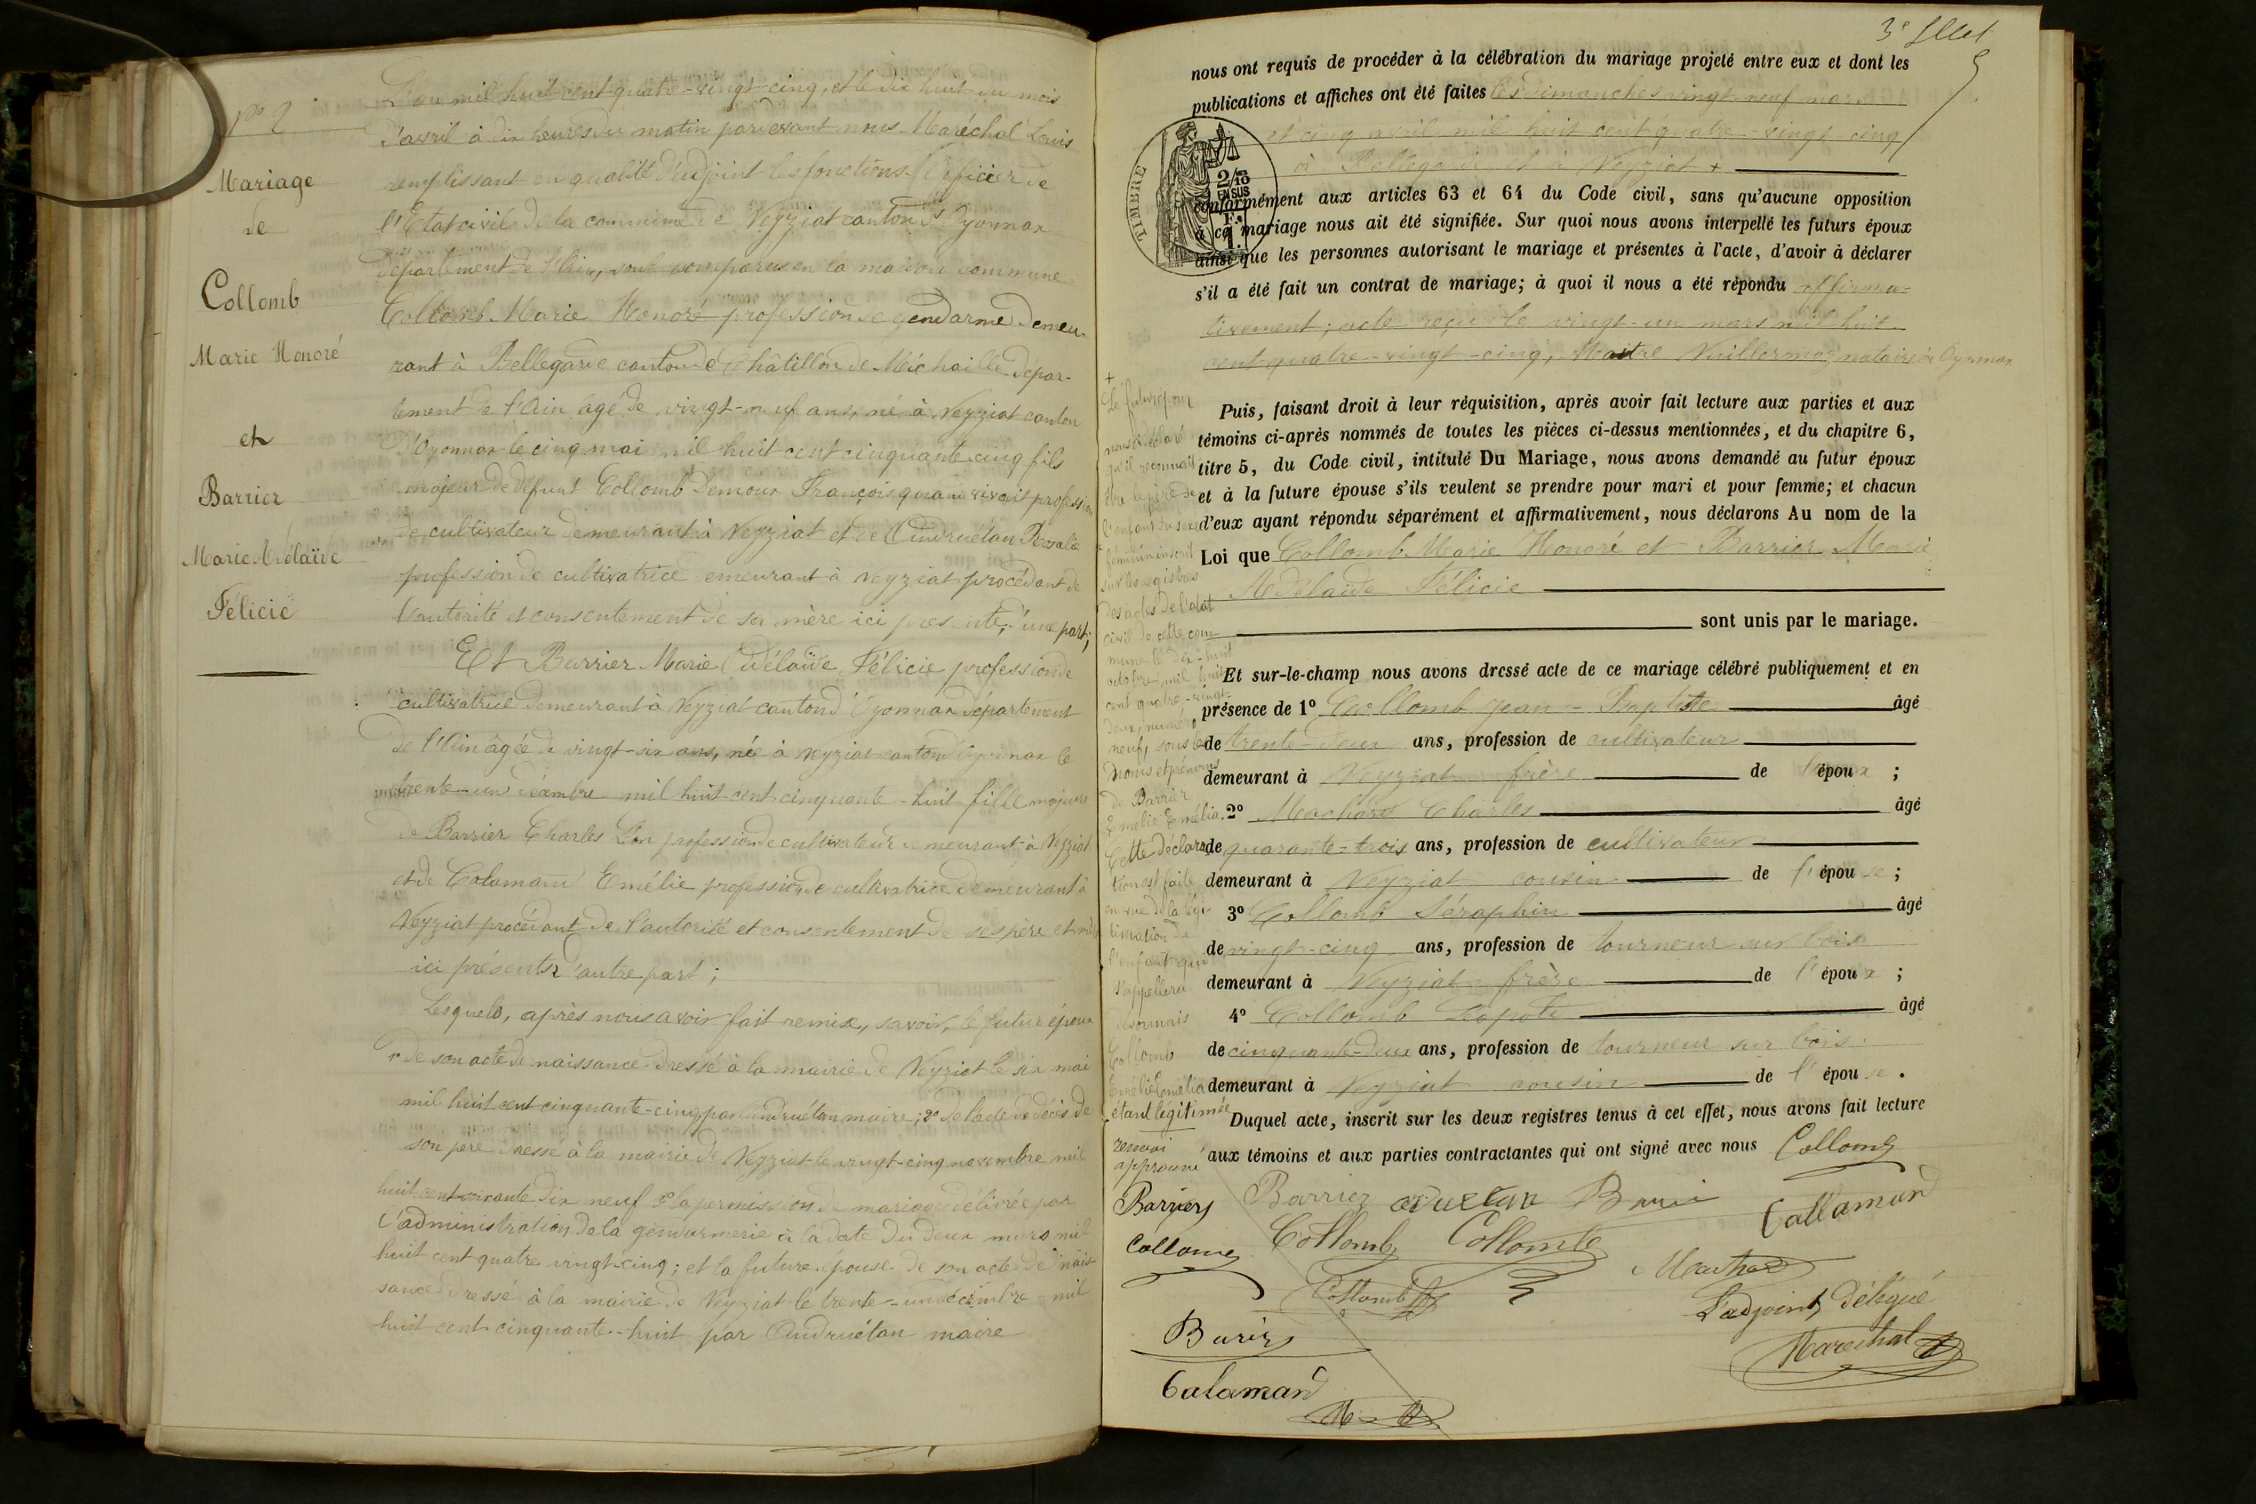 No 2
Mariage
de
Collomb
Marie Honoré
et
Barrier
Marie Adélaïde
Félicie
L'an mil huit cent quatre-vingt-cinq, et le dix huit du mois
d'avril à dix heures du matin pardevant nous Maréchal Louis
remplissant en qualité d'adjoint les fonctions d'officier de
l'Etat civil de la commune de Veyziat canton d'Oyonnax
département de l'Ain, sont comparus en la maison commune
Collomb Marie Honoré profession de gendarme demeu-
rant à Bellegarde canton de Châtillon de Michaille dépar-
tement de l'Ain âgé de vingt-neuf ans, né à Veyziat canton
d'Oyonnax le cinq mai mil huit cent cinquante cinq fils
majeur de défunt Collomb François quand vivait profession
de cultivateur demeurant à Veyziat et de Andruétan Rosalie
profession de cultivatrice demeurant à Veyziat procédant de
l'autorité et consentement de sa mère ici présente, d'une part;
Et Barrier Marie Adélaïde Félicie profession de
cultivatrice demeurant à Veyziat canton d'Oyonnax département
de l'Ain âgée de vingt-six ans, née à Veyziat canton d'Oyonnax le
trente-un décembre mil huit cent cinquante-huit fille majeure
de Barrier Charles profession de cultivateur demeurant à Veyziat
et de Calamand Emélie profession de cultivatrice demeurant à
Veyziat procédant de l'autorité et consentement de ses père et mère
ici présents d'autre part;
Lesquels, après nous avoir fait remise, savoir, le futur époux
1° de son acte de naissance dressé à la mairie de Veyziat le six mai
mil huit cent cinquante-cinq par Andruétan maire; 2° de l'acte de décès de
son père dressé à la mairie de Veyziat le vingt-cinq novembre mil
huit cent soixante dix neuf 3° la permission de mariage délivrée par
l'administration de la gendarmerie à la date du deux mars mil
huit cent quatre vingt-cinq; et la future épouse de son acte de nais-
sance dressé à la mairie de Veyziat le trente-un décembre mil
huit cent cinquante-huit par Andruétan maire
3e fllet
nous ont requis de procéder à la célébration du mariage projeté entre eux et dont les
publications et affiches ont été faites les dimanches vingt-neuf mars
et cinq avril mil huit cent quatre-vingt-cinq
à Bellegarde et à Veyziat +
TIMBRE
2/10
EN SUS
1 F.
conformément aux articles 63 et 64 du Code civil, sans qu'aucune opposition
à ce mariage nous ait été signifiée. Sur quoi nous avons interpellé les futurs époux
ainsi que les personnes autorisant le mariage et présentes à l'acte, d'avoir à déclarer
s'il a été fait un contrat de mariage; à quoi il nous a été répondu affirma-
tivement; acte reçu le vingt-un mars mil huit
cent quatre-vingt-cinq, Maître Vuillermoz notaire à Oyonnax
Puis, faisant droit à leur réquisition, après avoir fait lecture aux parties et aux
témoins ci-après nommés de toutes les pièces ci-dessus mentionnées, et du chapitre 6,
titre 5, du Code civil, intitulé Du Mariage, nous avons demandé au futur époux
et à la future épouse s'ils veulent se prendre pour mari et pour femme; et chacun
d'eux ayant répondu séparément et affirmativement, nous déclarons Au nom de la
Loi que Collomb Marie Honoré et Barrier Marie
Adélaïde Félicie
sont unis par le mariage.
Et sur-le-champ nous avons dressé acte de ce mariage célébré publiquement et en
présence de 1° Collomb Jean-Baptiste âgé
de trente-deux ans, profession de cultivateur
demeurant à Veyziat frère de l'époux ;
2° Machard Charles âgé
de quarante-trois ans, profession de cultivateur
demeurant à Veyziat cousin de l'épouse ;
3° Collomb Séraphin âgé
de vingt-cinq ans, profession de tourneur sur bois
demeurant à Veyziat frère de l'époux ;
4° Collomb âgé
de cinquante-deux ans, profession de tourneur sur bois
demeurant à Veyziat cousin de l'épouse.
Duquel acte, inscrit sur les deux registres tenus à cet effet, nous avons fait lecture
aux témoins et aux parties contractantes qui ont signé avec nous Collomb
+
Le futur époux
nous déclare
qu'il reconnait
être le père de
l'enfant du sexe
féminin inscrit
sur les registres
des actes de l'état
civil de cette com-
mune le dix-huit
octobre mil huit
cent quatre-vingt-
deux, numéro
neuf, sous les
noms et prénoms
de Barrier
Emélie Emélia.
Cette déclara-
tion est faite
en vue de la légi-
timation de
l'enfant qui
s'appellera
désormais
Collomb
Emélie Emélia
étant légitimée
renvoi
approuvé
Barrier
Collomb
Barrier
Calamand
Barrier
Collomb
Collomb
Collomb
Callamand
Machard
L'adjoint délégué
Marechal